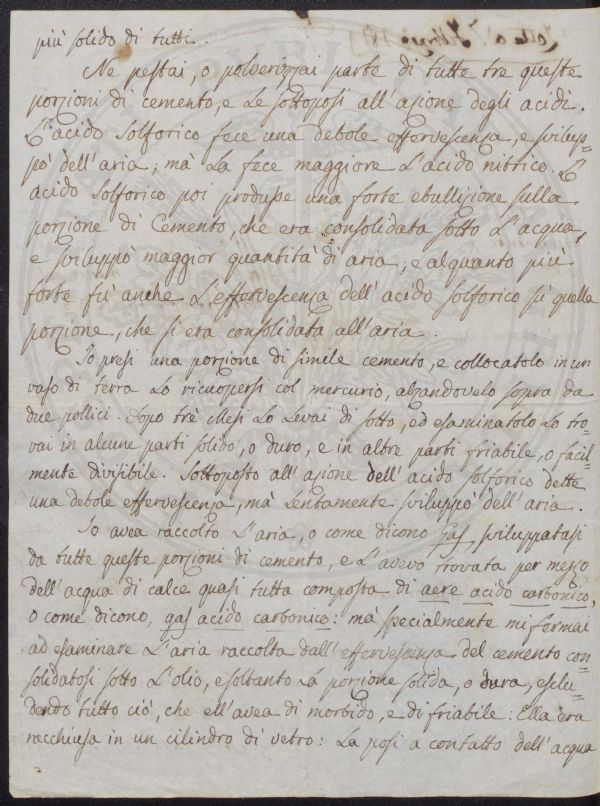 più solido di tutti.
Ne pestai, o polverizzai parte di tutte tre queste
porzioni di cemento, e le sottoposi all'azione degli acidi.
L'acido solforico fece una debole effervescenza, e svilup-
pò dell'aria; mà la fece maggiore l'acido nitrico. L'
acido solforico poi produsse una forte ebullizione sulla
porzione di Cemento, che era consolidata sotto l'acqua,
e sviluppò maggior quantità di aria; e alquanto più
forte fù anche l'effervescenza dell'acido solforico sù quella
porzione, che si era consolidata all'aria.
Io presi una porzione di simile cemento, e collocatolo in un
vaso di terra lo ricuopersi col mercurio, alzandovelo sopra da
due pollici. Dopo trè Mesi lo levai di sotto, ed esaminatolo lo tro-
vai in alcune parti solido, o duro, e in altre parti friabile, o facil-
mente divisibile. Sottoposto all'azione dell'acido solforico dette
una debole effervescenza, mà lentamente sviluppò dell'aria.
Io avea raccolto l'aria, o come dicono Gas, sviluppatasi
da tutte queste porzioni di cemento, e l'avevo trovata per mezzo
dell'acqua di calce quasi tutta composta di aere acido carbonico,
o come dicono, gas acido carbonico: mà specialmente mi fermai
ad esaminare l'aria raccolta dall'effervescenza del cemento con-
solidatosi sotto l'olio, e soltanto la porzione solida, o dura, esclu-
dendo tutto ciò, che ell'avea di morbido, e di friabile: Ella era
racchiusa in un cilindro di vetro: La posi a contatto dell'acqua